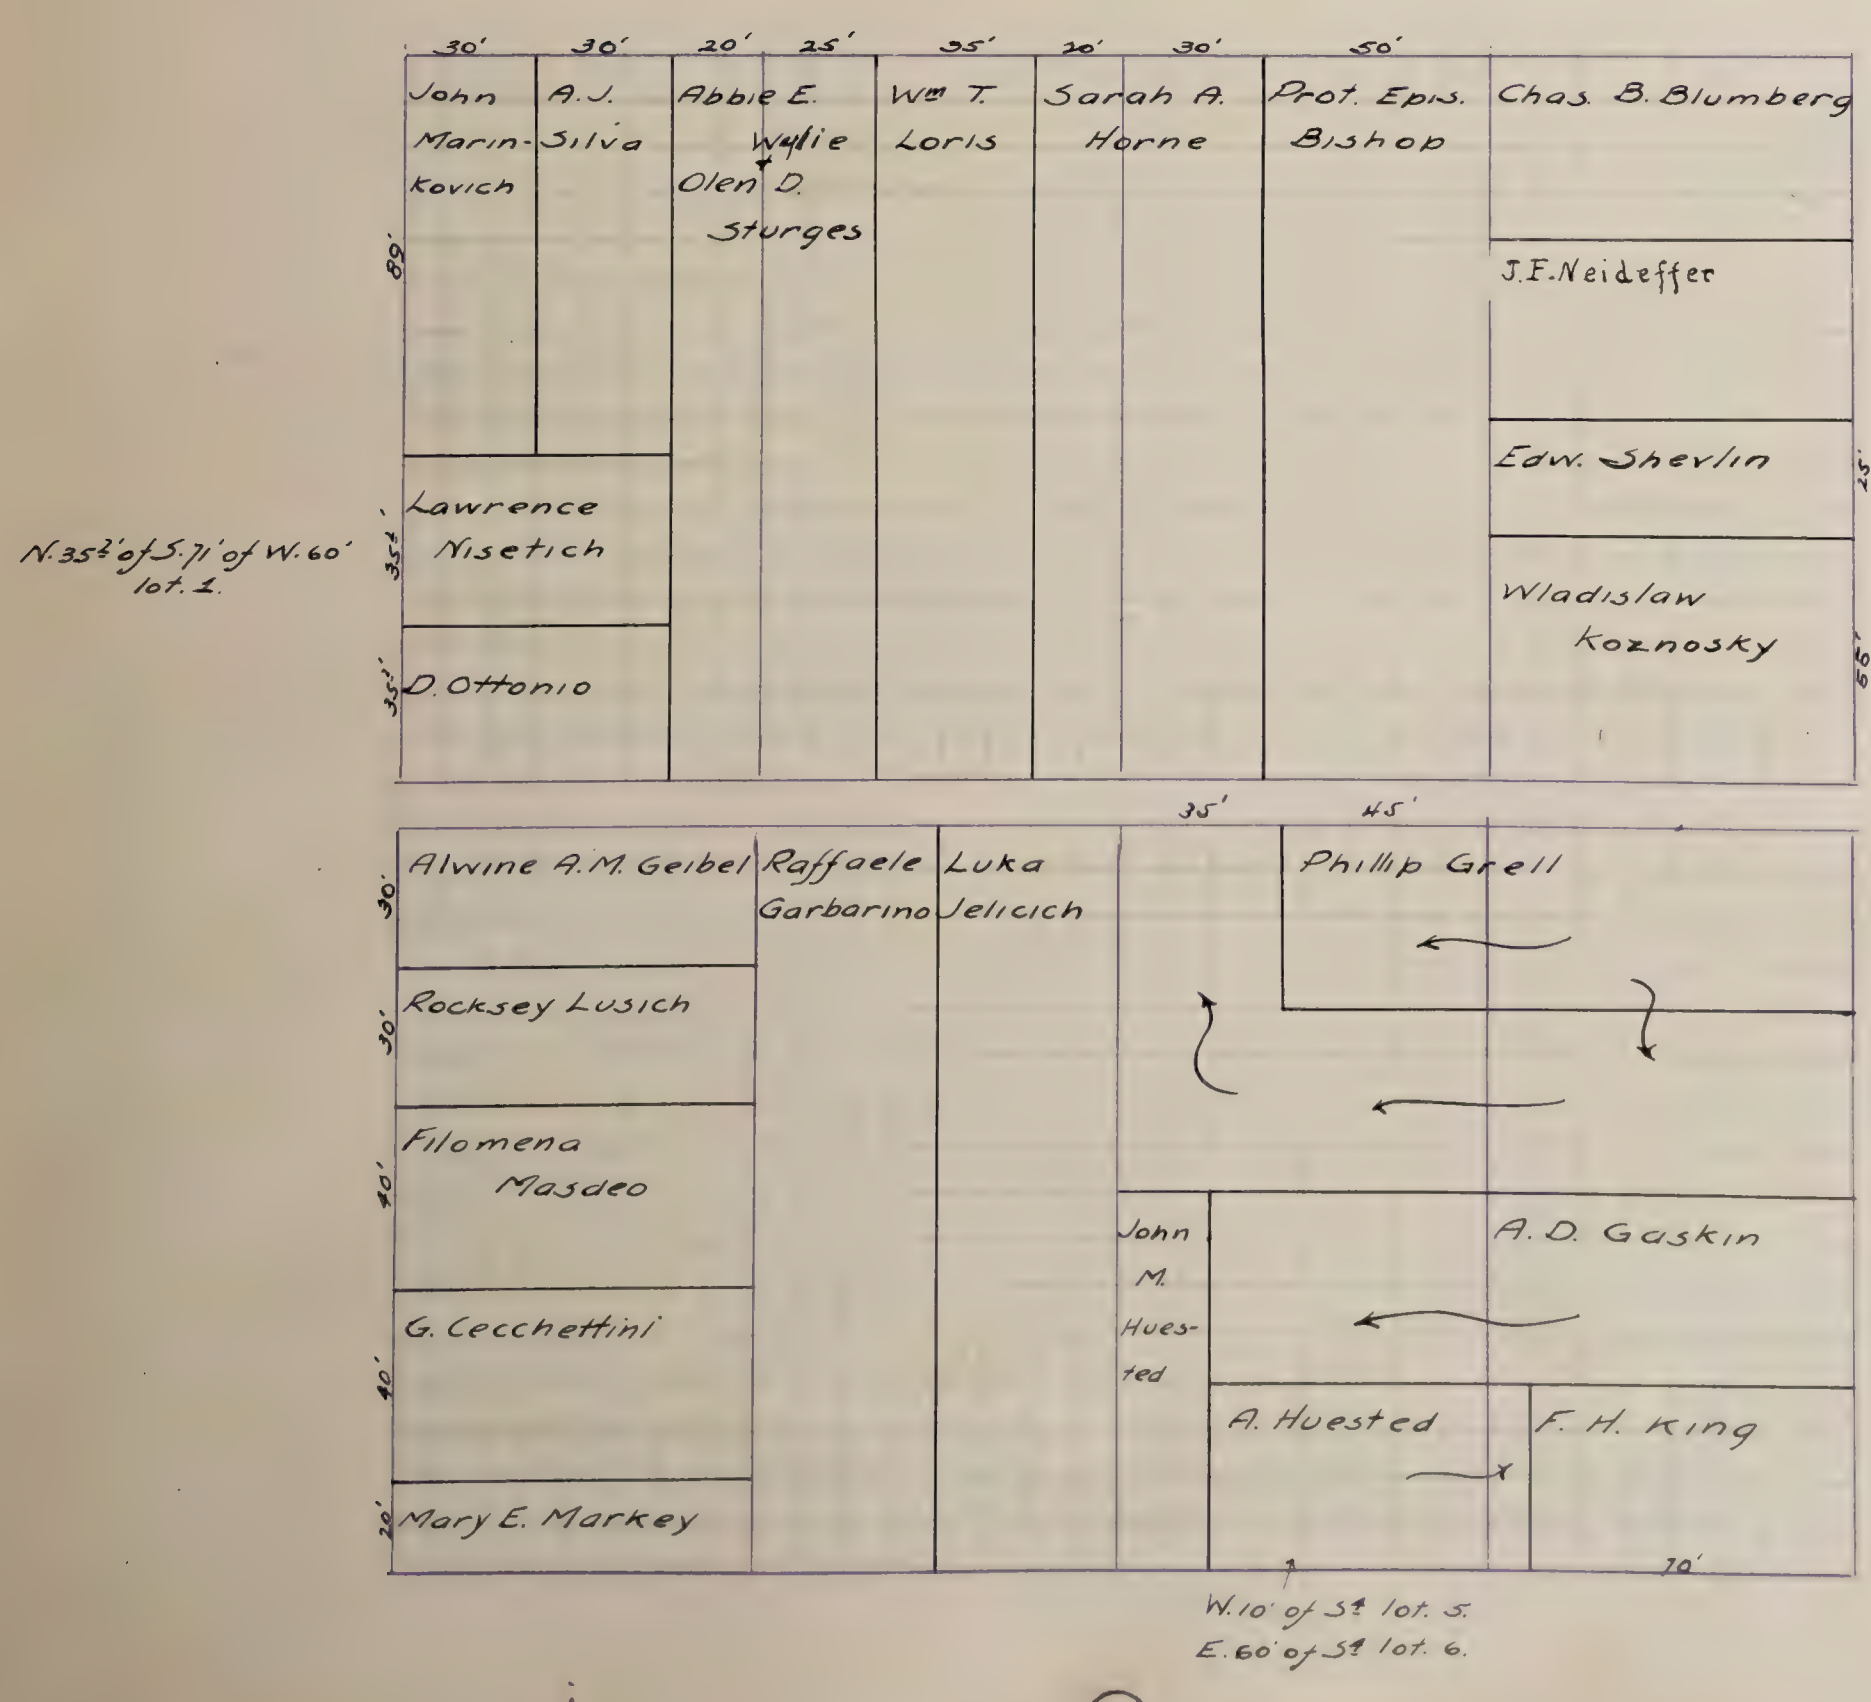 30' 30' 20' 25' 35' 20' 30' 50'
John
Marin-
Kovich
A.J.
Silva
Abbie E.
Wylie
Olen D.
Sturges
Wm T.
Loris
Sarah A.
Horne
Prot. Epis.
Bishop
Chas. B. Blumberg
J.F. Neideffer
Edw. Shevlin
25'
Wladislaw
Koznosky
55'
89'
Lawrence
Nisetich
35½'
N. 35½' of S. 71' of W. 60'
lot. 1.
D. Ottonio
35½'
35' 45'
30'
Alwine A.M. Geibel
Raffaele
Garbarino
Luka
Jelicich
Phillip Grell
30'
Rocksey Lusich
40'
Filomena
Masdeo
John
M.
Hues-
ted
A. D. Gaskin
40'
G. Cecchettini
A. Huested
F. H. King
20'
Mary E. Markey
70'
W. 10' of S¼ lot. 5.
E. 60' of S¼ lot. 6.